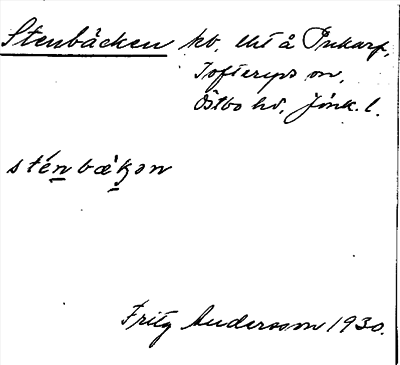 Stenbäcken hv, tht å Inkarp,
Tofteryds sn,
Östbo hd, Jönk. l.
sténbækən
Fritz Andersson 1930.